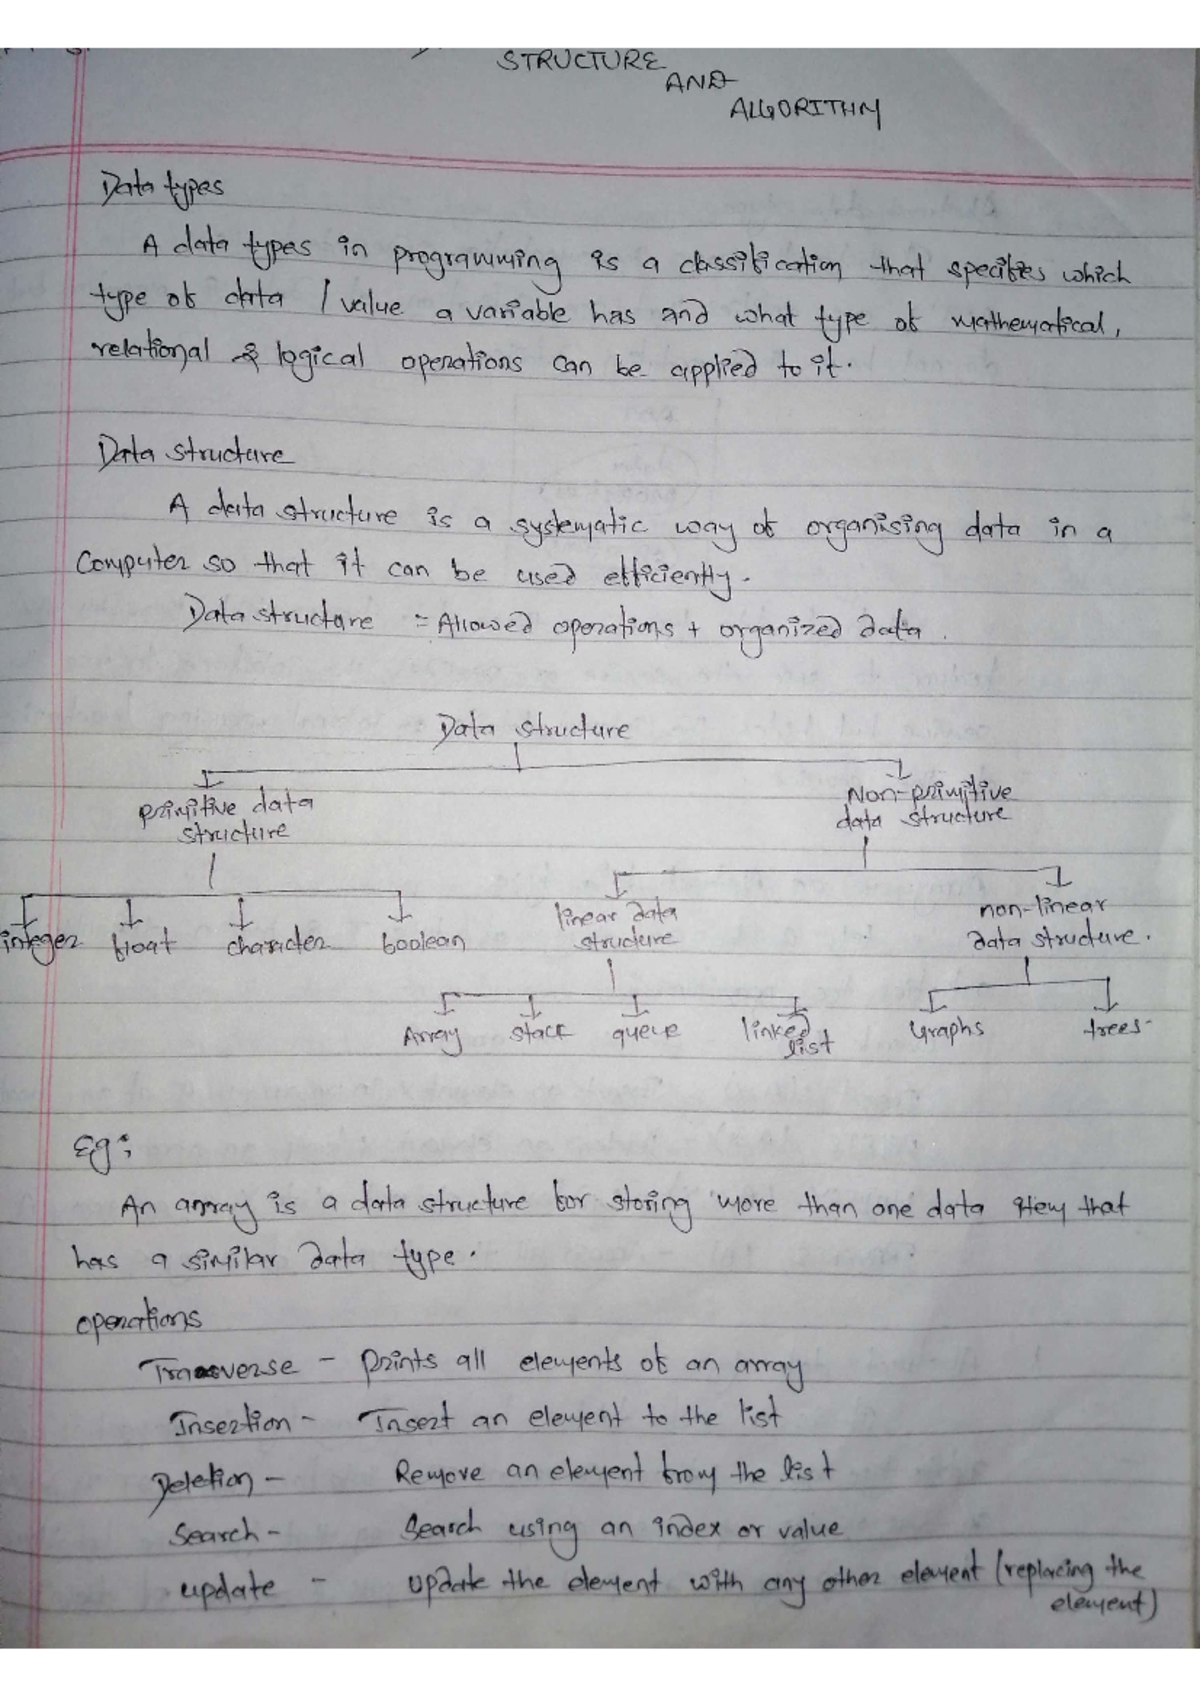 STRUCTURE
AND
ALGORITHM
Data types
A data types in programming is a classification that specifies which
type of data / value a variable has and what type of mathematical,
relational & logical operations can be applied to it.
Data structure
A data structure is a systematic way of organising data in a
Computer so that it can be used efficiently.
Data structure = Allowed operations + organized data.
Data structure
primitive data
structure
Non-primitive
data structure
integer float character boolean
linear data
structure
non-linear
data structure.
Array stack queue linked
list
Graphs trees
Eg:
An array is a data structure for storing more than one data item that
has a similar data type.
operations
Traverse - prints all elements of an array
Insertion - Insert an element to the list
Deletion - Remove an element from the list
Search - Search using an index or value
update - update the element with any other element (replacing the
element)